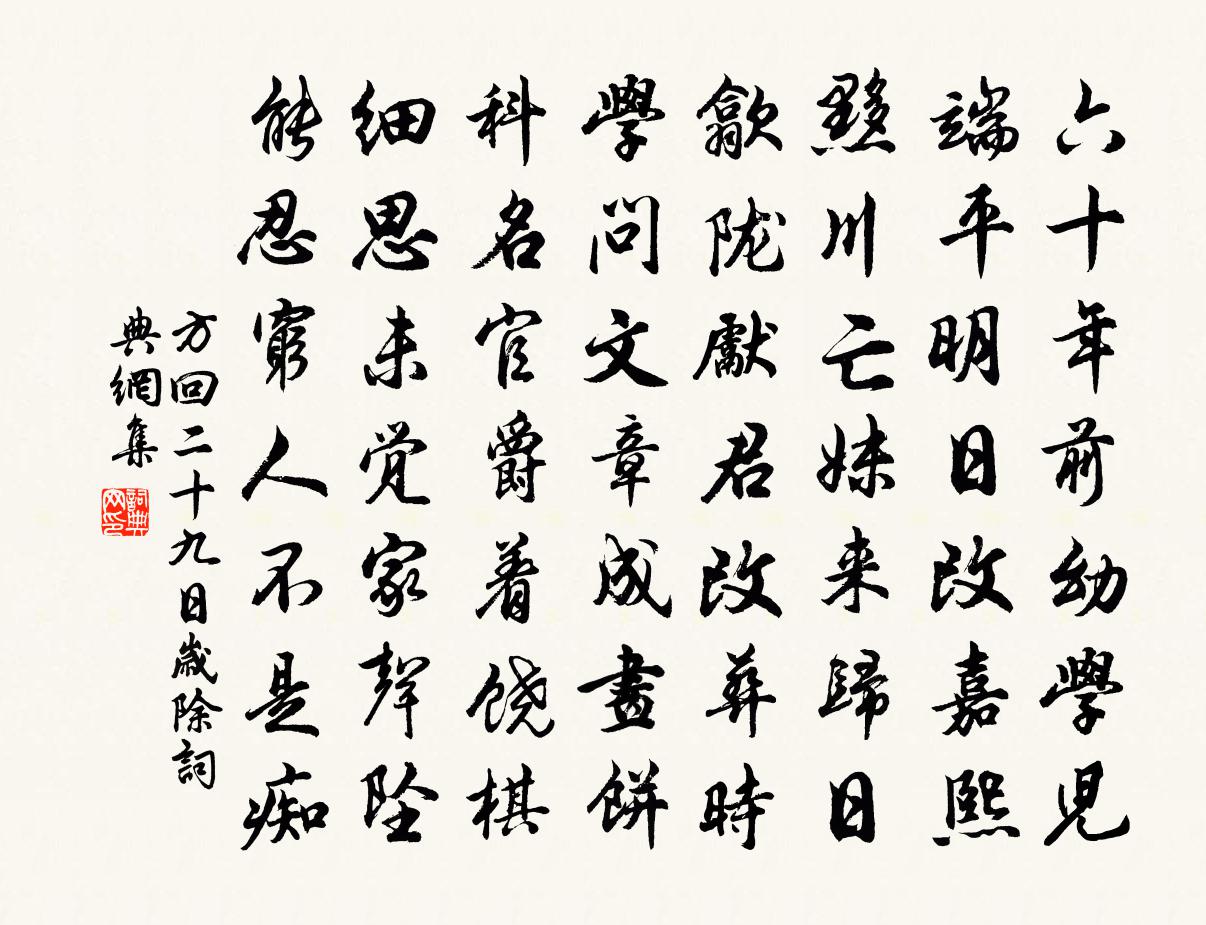 六十年前幼學兒
端平明日改嘉熙
黟川亡妹来歸日
歙陇獻君改葬時
學問文章成畫餅
科名官爵着饶棋
細思未觉家聲墜
能忍窮人不是痴
方回二十九日歲除詞
典網集
詞典网印